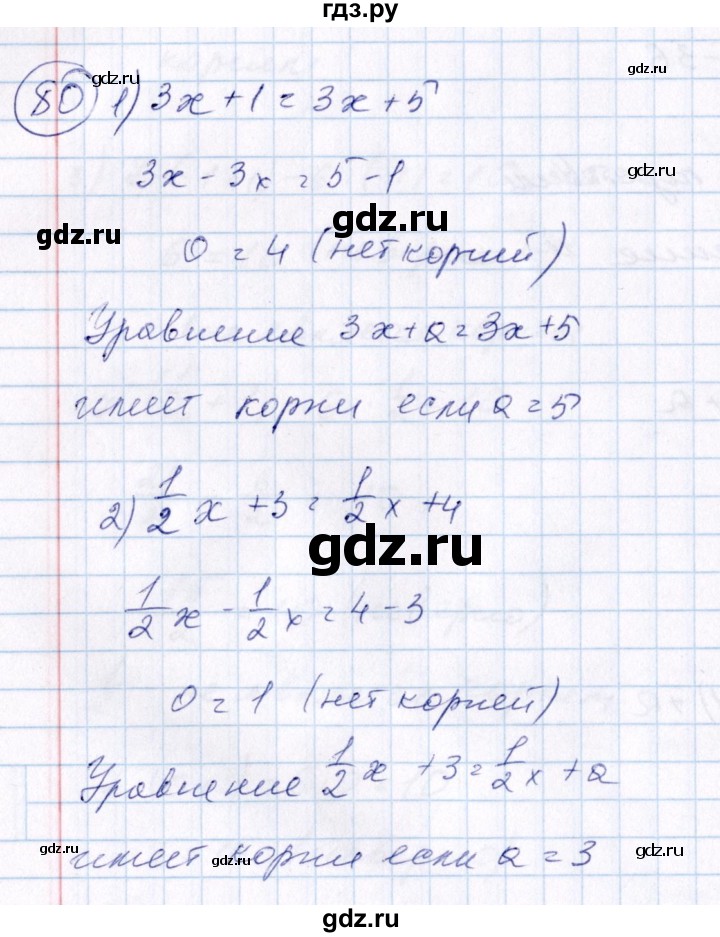 гдз.ру
80 1) 3x + 1 = 3x + 5
gdz.ru
gdz.ru
3x - 3x = 5 - 1
gdz.ru
gdz.ru
0 = 4 (нет корней)
Уравнение 3x + a = 3x + 5
имеет корни если a = 5
2) 1/2 x + 3 = 1/2 x + 4
gdz.ru
1/2 x - 1/2 x = 4 - 3
0 = 1 (нет корней)
Уравнение 1/2 x + 3 = 1/2 x + a
имеет корни если a = 3
gdz.ru
gdz.ru
gdz.ru
gdz.ru